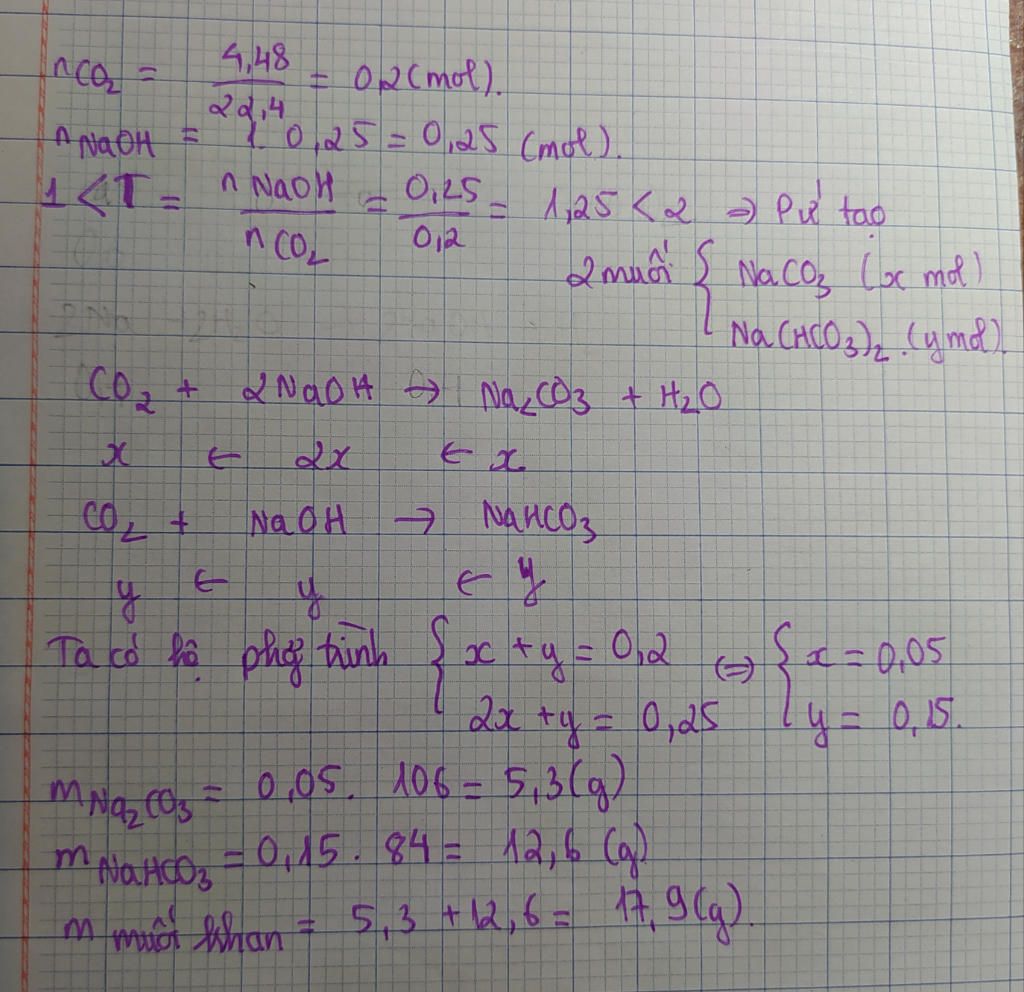 nCO₂ = 4,48/22,4 = 0,2 (mol).
nNaOH = 1. 0,25 = 0,25 (mol).
1 < T = nNaOH/nCO₂ = 0,25/0,2 = 1,25 < 2 ⇒ Pứ tạo
2 muối { NaCO₃ (x mol)
Na(HCO₃)₂. (y mol)
CO₂ + 2NaOH → Na₂CO₃ + H₂O
x ← 2x ← x
CO₂ + NaOH → NaHCO₃
y ← y ← y
Ta có hệ phg trình { x + y = 0,2 ⇔ { x = 0,05
2x + y = 0,25 y = 0,15.
mNa₂CO₃ = 0,05. 106 = 5,3 (g)
mNaHCO₃ = 0,15. 84 = 12,6 (g)
m muối khan = 5,3 + 12,6 = 17,9 (g).